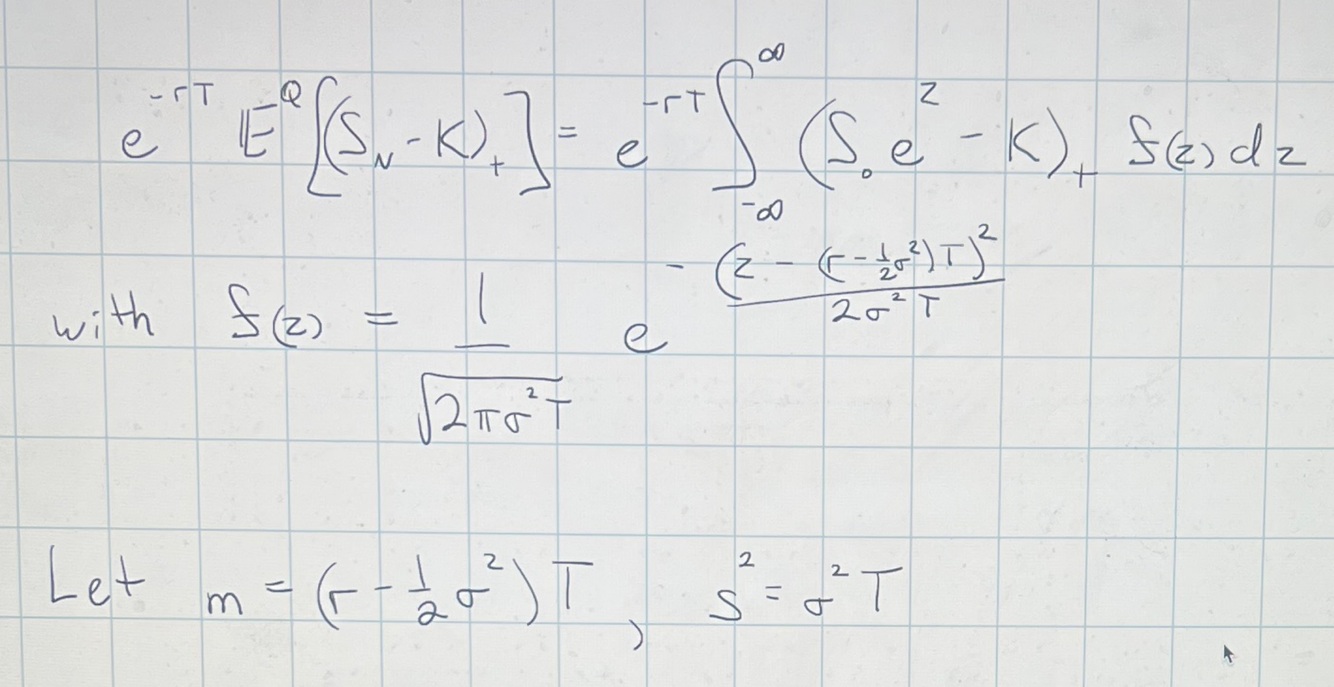 e^{-rT} 𝔼^Q[(S_N - K)_+] = e^{-rT} ∫_{-∞}^{∞} (S_0 e^z - K)_+ f(z) dz
with f(z) = 1/√(2πσ²T) e^{-(z - (r - ½σ²)T)²/(2σ²T)}
Let m = (r - ½σ²)T, s² = σ²T